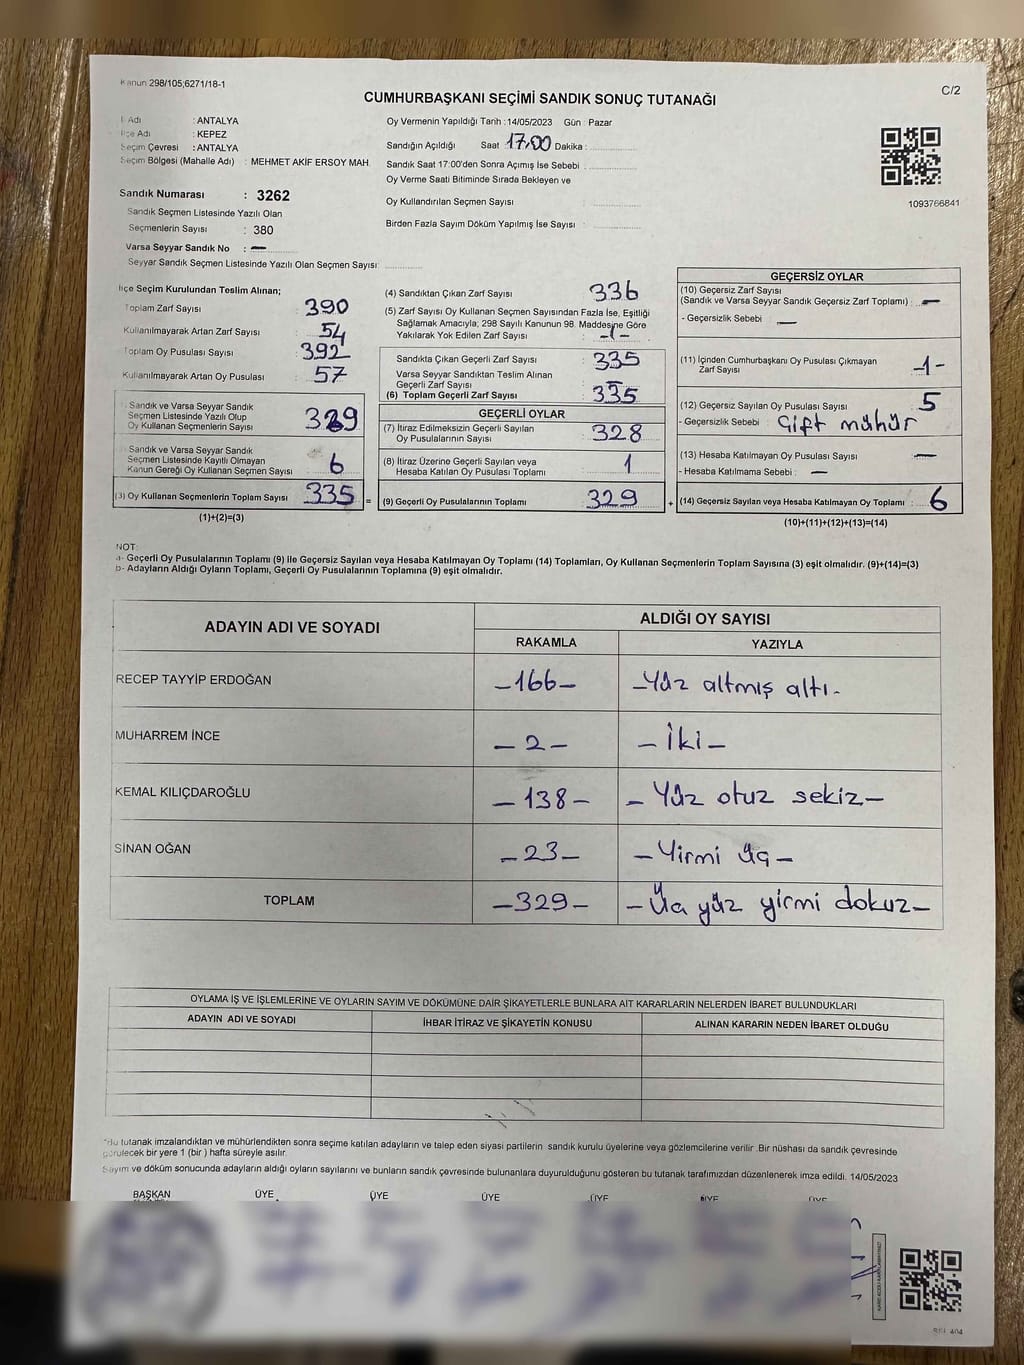 Kanun 298/105;6271/18-1
C/2
CUMHURBAŞKANI SEÇİMİ SANDIK SONUÇ TUTANAĞI
İl Adı : ANTALYA
İlçe Adı : KEPEZ
Seçim Çevresi : ANTALYA
Seçim Bölgesi (Mahalle Adı) : MEHMET AKİF ERSOY MAH.
Sandık Numarası : 3262
Sandık Seçmen Listesinde Yazılı Olan
Seçmenlerin Sayısı : 380
Varsa Seyyar Sandık No : —
Seyyar Sandık Seçmen Listesinde Yazılı Olan Seçmen Sayısı:
Oy Vermenin Yapıldığı Tarih : 14/05/2023 Gün : Pazar
Sandığın Açıldığı Saat 17.00 Dakika :
Sandık Saat 17:00'den Sonra Açımış İse Sebebi :
Oy Verme Saati Bitiminde Sırada Bekleyen ve
Oy Kullandırılan Seçmen Sayısı :
Birden Fazla Sayım Döküm Yapılmış İse Sayısı :
1093766841
İlçe Seçim Kurulundan Teslim Alınan;
Toplam Zarf Sayısı : 390
Kullanılmayarak Artan Zarf Sayısı : 54
Toplam Oy Pusulası Sayısı : 392
Kullanılmayarak Artan Oy Pusulası : 57
Sandık ve Varsa Seyyar Sandık
Seçmen Listesinde Yazılı Olup
Oy Kullanan Seçmenlerin Sayısı : 329
Sandık ve Varsa Seyyar Sandık
Seçmen Listesinde Kayıtlı Olmayan
Kanun Gereği Oy Kullanan Seçmen Sayısı : 6
(3) Oy Kullanan Seçmenlerin Toplam Sayısı : 335 =
(1)+(2)=(3)
(4) Sandıktan Çıkan Zarf Sayısı : 336
(5) Zarf Sayısı Oy Kullanan Seçmen Sayısından Fazla İse, Eşitliği
Sağlamak Amacıyla; 298 Sayılı Kanunun 98. Maddesine Göre
Yakılarak Yok Edilen Zarf Sayısı : -1-
Sandıkta Çıkan Geçerli Zarf Sayısı : 335
Varsa Seyyar Sandıktan Teslim Alınan
Geçerli Zarf Sayısı : —
(6) Toplam Geçerli Zarf Sayısı : 335
GEÇERLİ OYLAR
(7) İtiraz Edilmeksizin Geçerli Sayılan
Oy Pusulalarının Sayısı : 328
(8) İtiraz Üzerine Geçerli Sayılan veya
Hesaba Katılan Oy Pusulası Toplamı : 1
(9) Geçerli Oy Pusulalarının Toplamı : 329 +
GEÇERSİZ OYLAR
(10) Geçersiz Zarf Sayısı
(Sandık ve Varsa Seyyar Sandık Geçersiz Zarf Toplamı) : —
- Geçersizlik Sebebi : —
(11) İçinden Cumhurbaşkanı Oy Pusulası Çıkmayan
Zarf Sayısı : -1-
(12) Geçersiz Sayılan Oy Pusulası Sayısı : 5
- Geçersizlik Sebebi : Çift mühür
(13) Hesaba Katılmayan Oy Pusulası Sayısı : —
- Hesaba Katılmama Sebebi : —
(14) Geçersiz Sayılan veya Hesaba Katılmayan Oy Toplamı : 6
(10)+(11)+(12)+(13)=(14)
NOT:
a- Geçerli Oy Pusulalarının Toplamı (9) ile Geçersiz Sayılan veya Hesaba Katılmayan Oy Toplamı (14) Toplamları, Oy Kullanan Seçmenlerin Toplam Sayısına (3) eşit olmalıdır. (9)+(14)=(3)
b- Adayların Aldığı Oyların Toplamı, Geçerli Oy Pusulalarının Toplamına (9) eşit olmalıdır.
ADAYIN ADI VE SOYADI ALDIĞI OY SAYISI
RAKAMLA YAZIYLA
RECEP TAYYİP ERDOĞAN -166- -Yüz altmış altı-
MUHARREM İNCE -2- -İki-
KEMAL KILIÇDAROĞLU -138- -Yüz otuz sekiz-
SİNAN OĞAN -23- -Yirmi üç-
TOPLAM -329- -Üç yüz yirmi dokuz-
OYLAMA İŞ VE İŞLEMLERİNE VE OYLARIN SAYIM VE DÖKÜMÜNE DAİR ŞİKAYETLERLE BUNLARA AİT KARARLARIN NELERDEN İBARET BULUNDUKLARI
ADAYIN ADI VE SOYADI İHBAR İTİRAZ VE ŞİKAYETİN KONUSU ALINAN KARARIN NEDEN İBARET OLDUĞU
*Bu tutanak imzalandıktan ve mühürlendikten sonra seçime katılan adayların ve talep eden siyasi partilerin sandık kurulu üyelerine veya gözlemcilerine verilir .Bir nüshası da sandık çevresinde
görülecek bir yere 1 (bir ) hafta süreyle asılır.
Sayım ve döküm sonucunda adayların aldığı oyların sayılarını ve bunların sandık çevresinde bulunanlara duyurulduğunu gösteren bu tutanak tarafımızdan düzenlenerek imza edildi. 14/05/2023
BAŞKAN ÜYE ÜYE ÜYE ÜYE ÜYE ÜYE